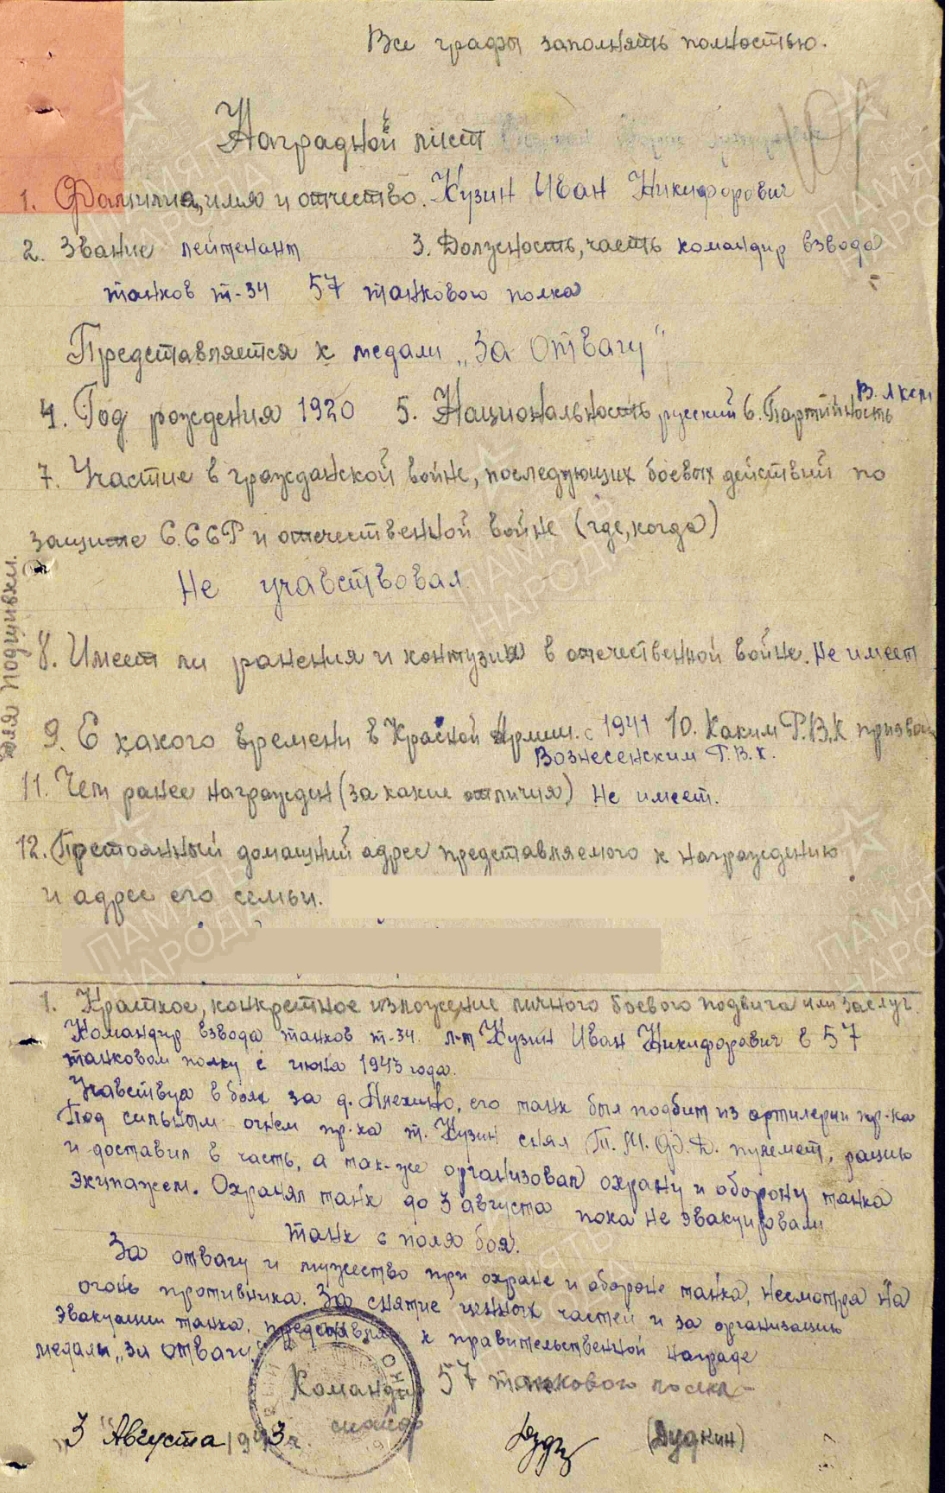 Все графы заполнять полностью.
Наградной лист
1. Фамилия, имя и отчество. Кузин Иван Никифорович
2. Звание лейтенант 3. Должность, часть командир взвода
танков т-34 57 танкового полка
Представляется к медали „За Отвагу"
4. Год рождения 1920 5. Национальность русский 6. Партийность В.Л.К.С.М
7. Участие в гражданской войне, последующих боевых действий по
защите С.С.С.Р и отечественной войне (где, когда)
Не учавствовал
8. Имеет ли ранения и контузия в отечественной войне. Не имеет
9. С какого времени в Красной Армии. с 1941 10. Каким Р.В.К призван
Вознесенским Р.В.К.
11. Чем ранее награжден (за какие отличия) Не имеет.
12. Постоянный домашний адрес представляемого к награждению
и адрес его семьи.
Для подшивки.
1. Краткое, конкретное изложение личного боевого подвига или заслуг
Командир взвода танков т-34. л-т Кузин Иван Никифорович в 57
танковом полку с июня 1943 года.
Учавствуя в боях за д. Анехино, его танк был подбит из артилерии пр-ка
Под сильным огнем пр-ка т. Кузин снял Т.М.Ф.Д. пулемет, рацию
и доставил в часть, а так-же организовал охрану и оборону танка
экипажем. Охранял танк до 3 августа пока не эвакуировали
танк с поля боя.
За отвагу и мужество при охране и обороне танка, несмотря на
огонь противника. За снятие ценных частей и за организацию
эвакуации танка, представляю к правительственной награде
медали „за отвагу"
Командир 57 танкового полка
3 "Августа 1943 г. (Дудкин)
ПАМЯТЬ
НАРОДА